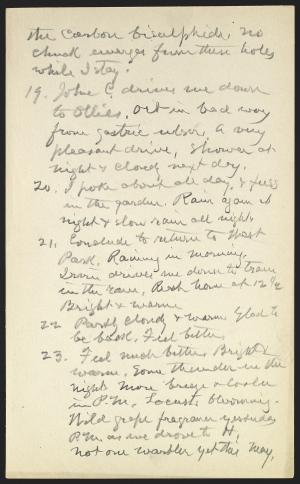 the Carbon bisulphide, no
chuck emerges from those holes
while I stay.
19. John C. drives me down
to Ollies. Ort in bad way
from gastric ulcer. A very
pleasant drive, shower at
night & cloudy next day.
20. I poke about all day, &
in the garden. Rain again at
night & slow rain all night
21. Conclude to return to West
Park. Raining in morning.
Irvin drives me down to train
in the rain, Reach home at 12
Bright & warm
22 Partly cloudy & warm Glad to
be back. Feel better.
23. Feel much better. Bright &
warm. Some thunder in the
night. More breeze & cooler
in P.M. Locusts blooming.
Wild grape fragrance yesterday
P.M. as we drove to H;
not one warbler yet this May.